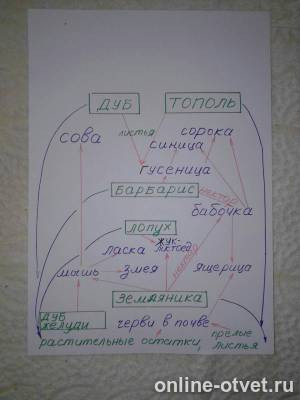 ДУБ ТОПОЛЬ
сова листья сорока
синица
гусеница
БАРБАРИС нектар
бабочка
ЛОПУХ
ласка жук-листоед нектар
мышь змея ящерица
ЗЕМЛЯНИКА
ДУБ желуди черви в почве прелые
растительные остатки, листья
online-otvet.ru